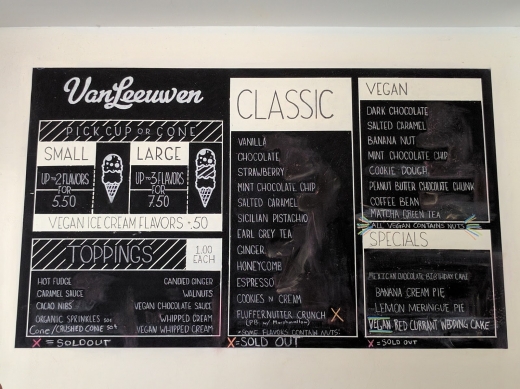 VanLeeuwen
PICK CUP OR CONE
SMALL
UP TO 2 FLAVORS
FOR
5.50
LARGE
UP TO 3 FLAVORS
FOR
7.50
VEGAN ICE CREAM FLAVORS +.50
TOPPINGS
1.00
EACH
HOT FUDGE
CARAMEL SAUCE
CACAO NIBS
ORGANIC SPRINKLES 50¢
Cone/CRUSHED CONE 50¢
CANDIED GINGER
WALNUTS
VEGAN CHOCOLATE SAUCE
WHIPPED CREAM
VEGAN WHIPPED CREAM
X = SOLD OUT
CLASSIC
VANILLA
CHOCOLATE
STRAWBERRY
MINT CHOCOLATE CHIP
SALTED CARAMEL
SICILIAN PISTACHIO
EARL GREY TEA
GINGER
HONEYCOMB
ESPRESSO
COOKIES N CREAM
FLUFFERNUTTER CRUNCH X
(PB w/ Marshmallow)
*SOME FLAVORS CONTAIN NUTS*
X =SOLD OUT
VEGAN
DARK CHOCOLATE
SALTED CARAMEL
BANANA NUT
MINT CHOCOLATE CHIP
COOKIE DOUGH
PEANUT BUTTER CHOCOLATE CHUNK
COFFEE BEAN
MATCHA GREEN TEA
ALL VEGAN CONTAINS NUTS
SPECIALS
MEXICAN CHOCOLATE BIRTHDAY CAKE
BANANA CREAM PIE
LEMON MERINGUE PIE
VEGAN RED CURRANT WEDDING CAKE
X = SOLD OUT